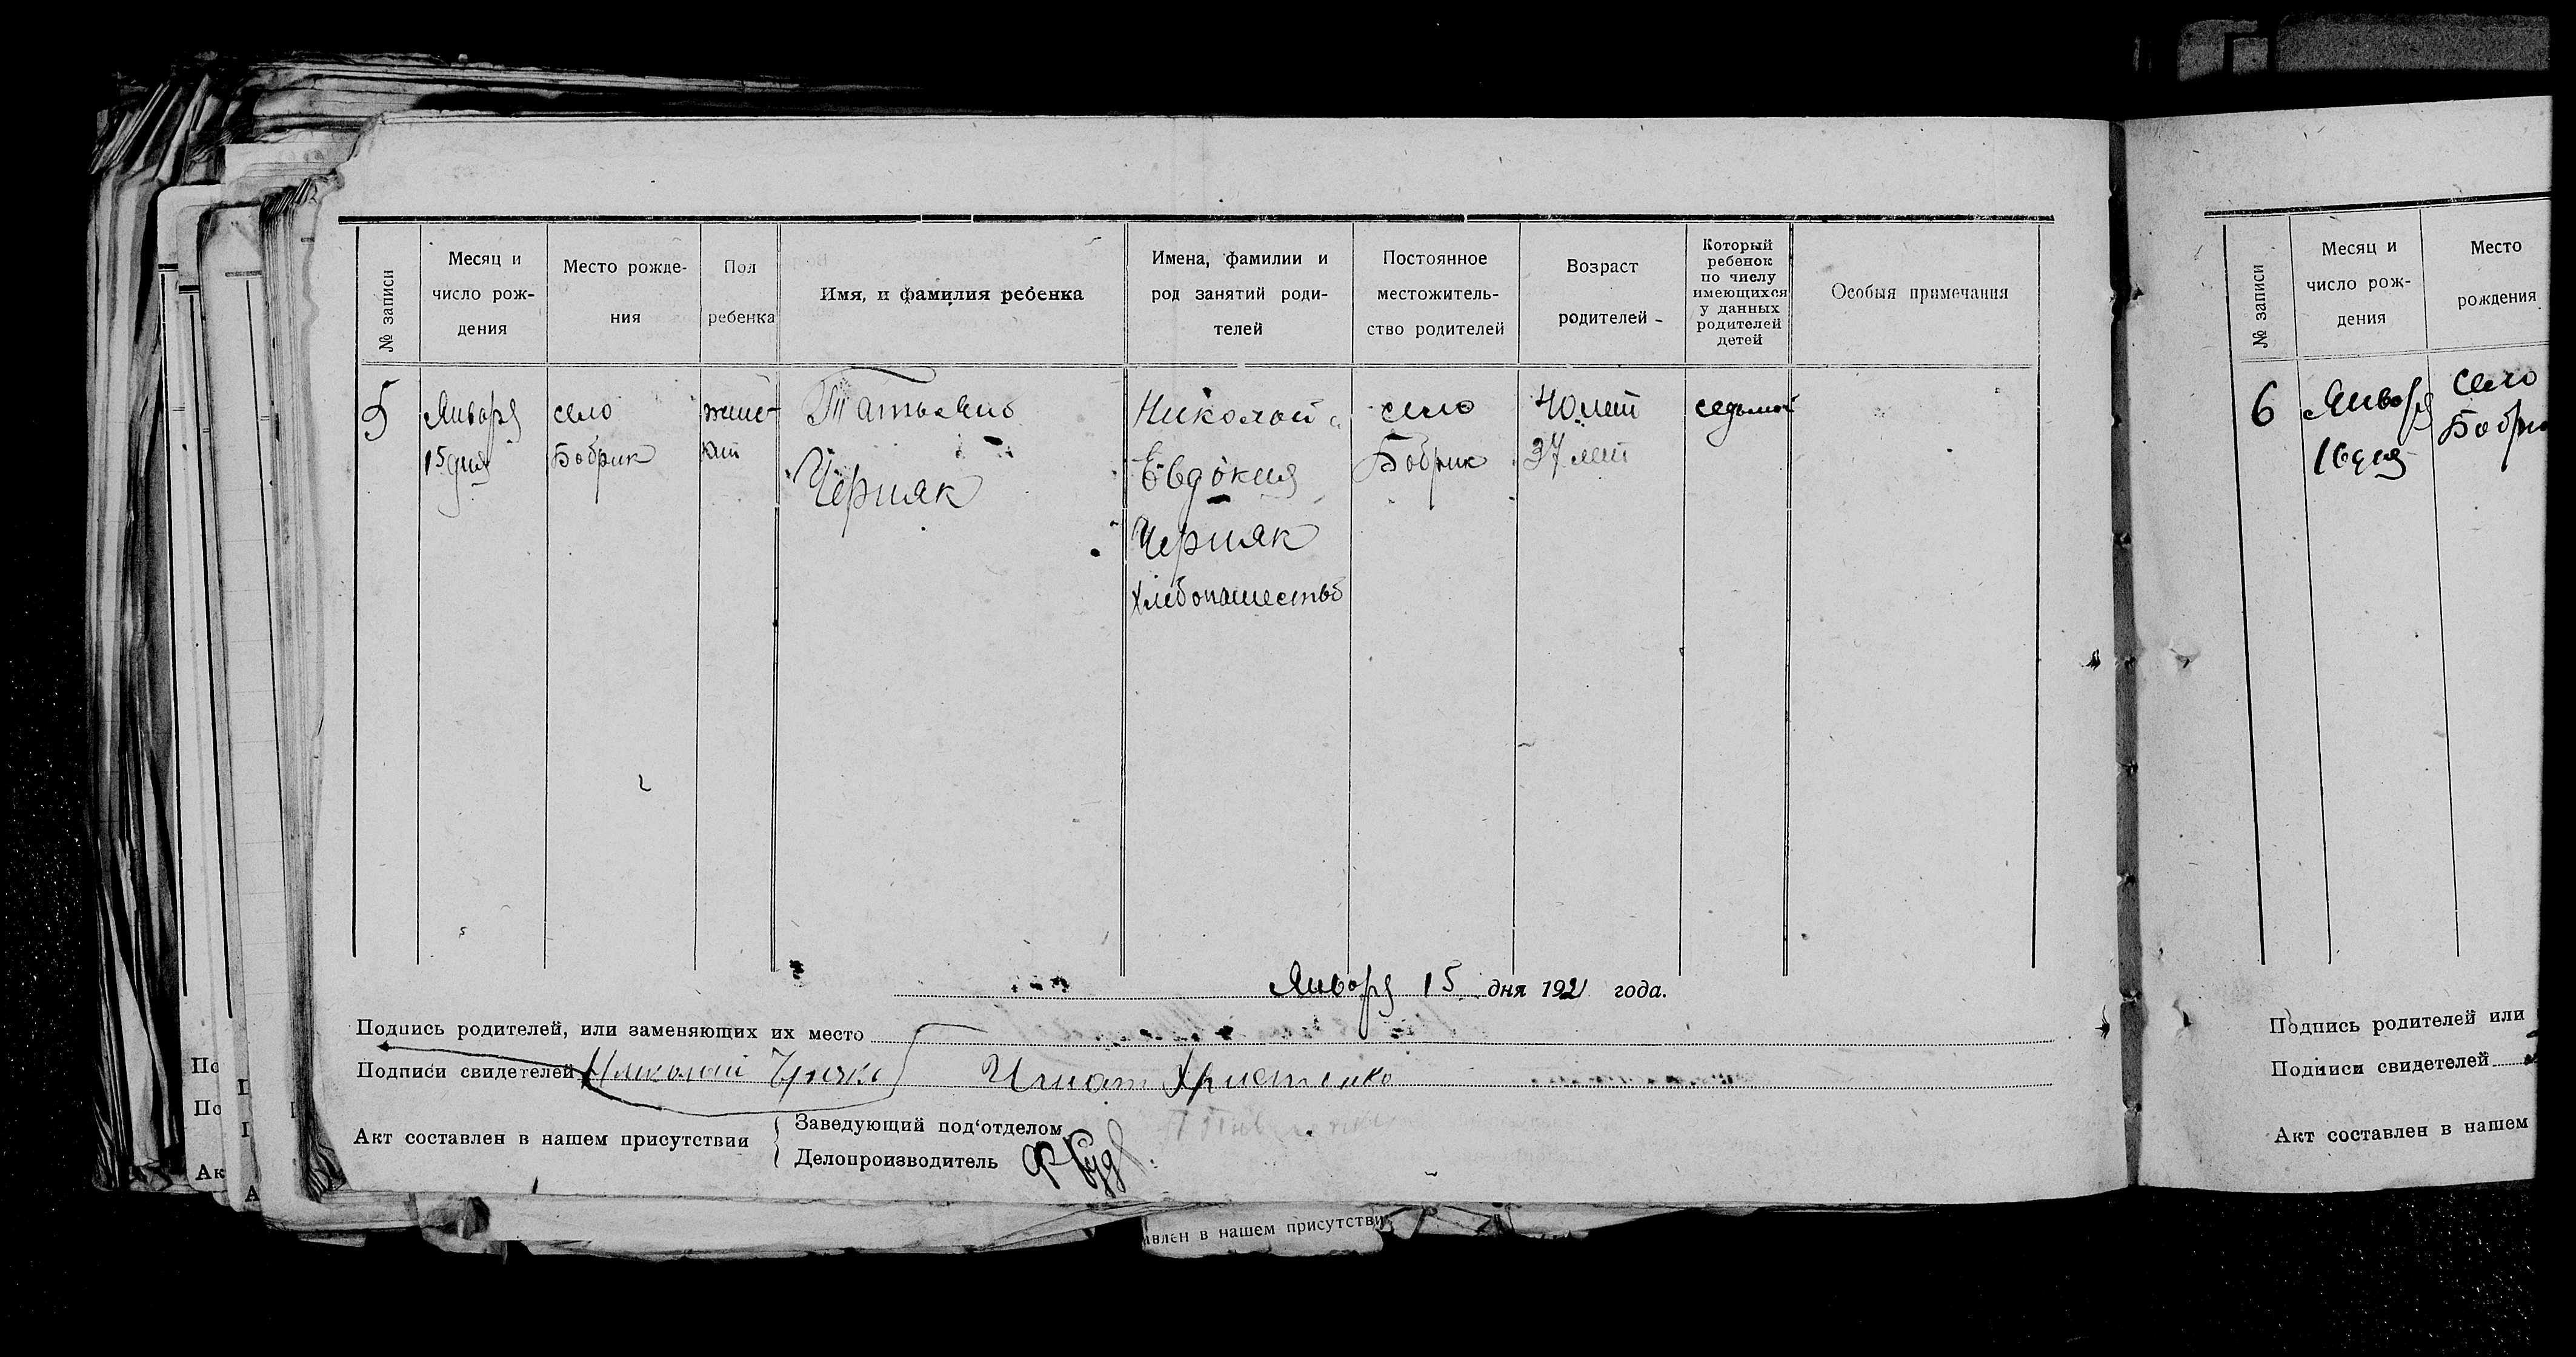 № записи
Месяц и
число рож-
дения
Место рожде-
ния
Пол
ребенка
Имя, и фамилия ребенка
Имена, фамилии и
род занятий роди-
телей
Постоянное
местожитель-
ство родителей
Возраст
родителей
Который
ребенок
по числу
имеющихся
у данных
родителей
детей
Особыя примечания
5
Января
15 дня
село
Бобрик
женс-
кий
Татьяна
Черняк
Николай
Евдокия
Черняк
Хлебопашество
село
Бобрик
40 лет
37 лет
седьмой
Января 15 дня 1921 года.
Подпись родителей, или заменяющих их место
Подписи свидетелей Николай Игнат Христенко
Акт составлен в нашем присутствии
Заведующий под‘отделом
Делопроизводитель
авлен в нашем присутстви
№ записи
Месяц и
число рож-
дения
Место
рождения
6
Января
16 дня
село
Бобри
Подпись родителей или
Подписи свидетелей
Акт составлен в нашем
По
По
Ак
А